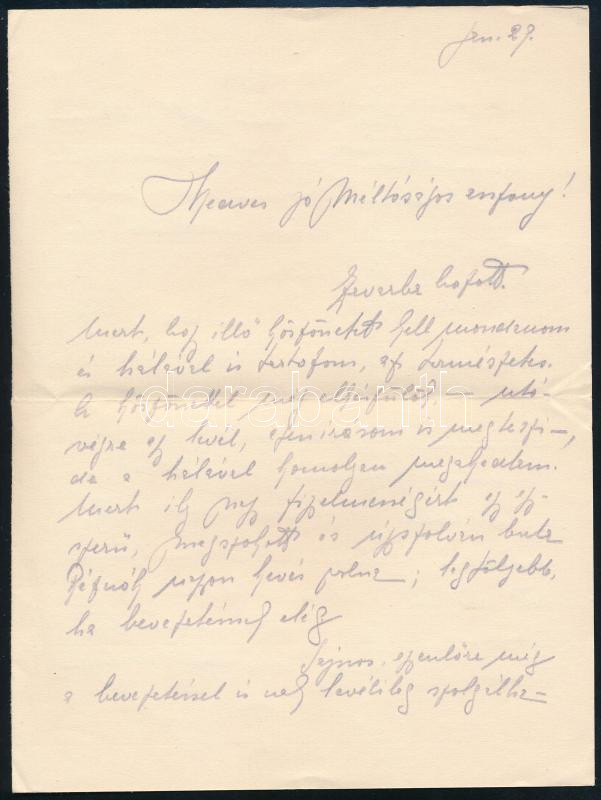 jan. 27.
Kedves jó Méltóságos asszony!
Zavarba hozott.
Mert, hogy illő köszönetet kell mondanom
és hálával is tartozom, az természetes.
A köszönettel még elkészülök — utó-
végre egy levél, írásom is megteszi —,
de a hálával komolyan megakadtam.
Mert ily nagy figyelmességért egy egy-
szerű, megszokott és
nagyon kevés volna; legföljebb,
ha bevezetésnek elég
Sajnos, egyenlőre még
a bevezetéssel is csak levélileg szolgálha-
darabanth